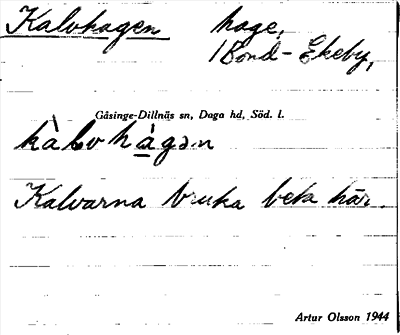 Kalvhagen hage,
Bond-Ekeby,
Gåsinge-Dillnäs sn, Daga hd, Söd. l.
kàlvhágən
Kalvarna bruka beta här.
Artur Olsson 1944